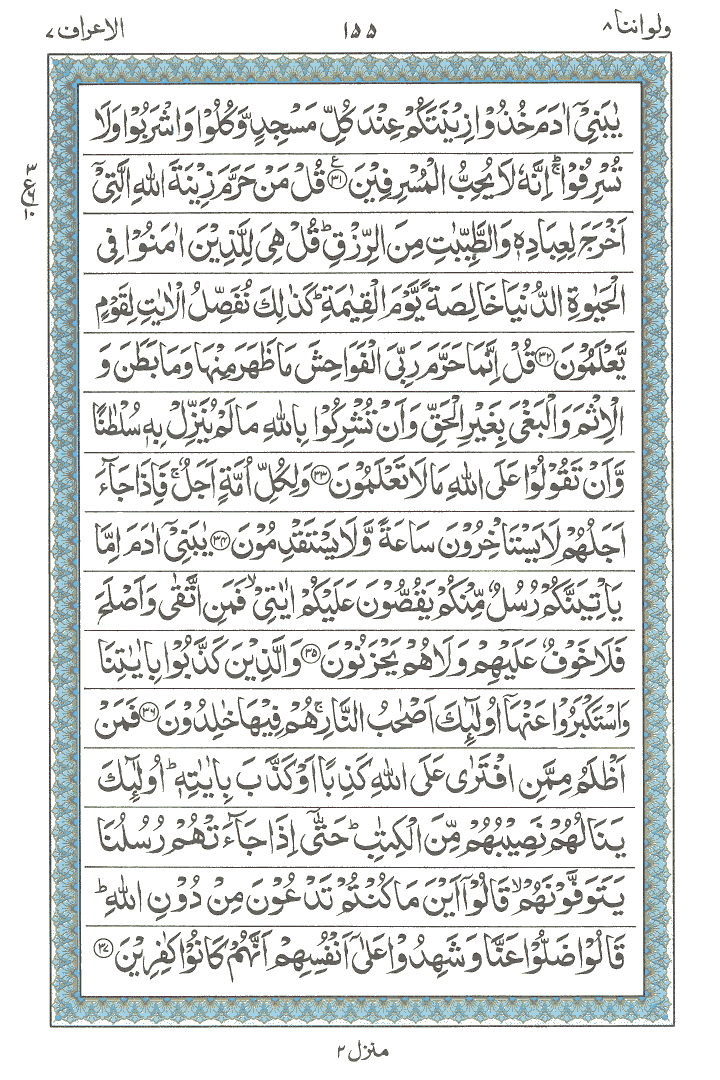 ولواننا ٨ ١٥٥ الاعراف ٧
يٰبَنِيْۤ اٰدَمَ خُذُوْا زِيْنَتَكُمْ عِنْدَ كُلِّ مَسْجِدٍ وَّكُلُوْا وَاشْرَبُوْا وَلَا
تُسْرِفُوْا ۚ اِنَّهٗ لَا يُحِبُّ الْمُسْرِفِيْنَ ﴿٣١﴾ ع قُلْ مَنْ حَرَّمَ زِيْنَةَ اللّٰهِ الَّتِيْۤ
٣ ع ٦ ١٠
اَخْرَجَ لِعِبَادِهٖ وَالطَّيِّبٰتِ مِنَ الرِّزْقِ ؕ قُلْ هِىَ لِلَّذِيْنَ اٰمَنُوْا فِى
الْحَيٰوةِ الدُّنْيَا خَالِصَةً يَّوْمَ الْقِيٰمَةِ ؕ كَذٰلِكَ نُفَصِّلُ الْاٰيٰتِ لِقَوْمٍ
يَّعْلَمُوْنَ ﴿٣٢﴾ قُلْ اِنَّمَا حَرَّمَ رَبِّىَ الْفَوَاحِشَ مَا ظَهَرَ مِنْهَا وَمَا بَطَنَ وَ
الْاِثْمَ وَالْبَغْىَ بِغَيْرِ الْحَقِّ وَاَنْ تُشْرِكُوْا بِاللّٰهِ مَا لَمْ يُنَزِّلْ بِهٖ سُلْطٰنًا
وَّاَنْ تَقُوْلُوْا عَلَى اللّٰهِ مَا لَا تَعْلَمُوْنَ ﴿٣٣﴾ وَلِكُلِّ اُمَّةٍ اَجَلٌ ۚ فَاِذَا جَآءَ
اَجَلُهُمْ لَا يَسْتَاْخِرُوْنَ سَاعَةً وَّلَا يَسْتَقْدِمُوْنَ ﴿٣٤﴾ يٰبَنِيْۤ اٰدَمَ اِمَّا
يَاْتِيَنَّكُمْ رُسُلٌ مِّنْكُمْ يَقُصُّوْنَ عَلَيْكُمْ اٰيٰتِيْ ۙ فَمَنِ اتَّقٰى وَاَصْلَحَ
فَلَا خَوْفٌ عَلَيْهِمْ وَلَا هُمْ يَحْزَنُوْنَ ﴿٣٥﴾ وَالَّذِيْنَ كَذَّبُوْا بِاٰيٰتِنَا
وَاسْتَكْبَرُوْا عَنْهَاۤ اُولٰٓئِكَ اَصْحٰبُ النَّارِ ۚ هُمْ فِيْهَا خٰلِدُوْنَ ﴿٣٦﴾ فَمَنْ
اَظْلَمُ مِمَّنِ افْتَرٰى عَلَى اللّٰهِ كَذِبًا اَوْ كَذَّبَ بِاٰيٰتِهٖ ؕ اُولٰٓئِكَ
يَنَالُهُمْ نَصِيْبُهُمْ مِّنَ الْكِتٰبِ ؕ حَتّٰۤى اِذَا جَآءَتْهُمْ رُسُلُنَا
يَتَوَفَّوْنَهُمْ ۙ قَالُوْۤا اَيْنَ مَا كُنْتُمْ تَدْعُوْنَ مِنْ دُوْنِ اللّٰهِ ؕ
قَالُوْا ضَلُّوْا عَنَّا وَشَهِدُوْا عَلٰۤى اَنْفُسِهِمْ اَنَّهُمْ كَانُوْا كٰفِرِيْنَ ﴿٣٧﴾
منزل ٢